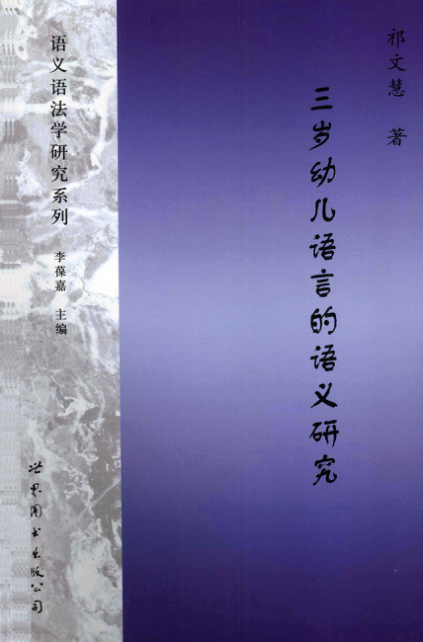 祁文慧 著
三岁幼儿语言的语义研究
语义语法学研究系列
李葆嘉 主编
世界图书出版公司